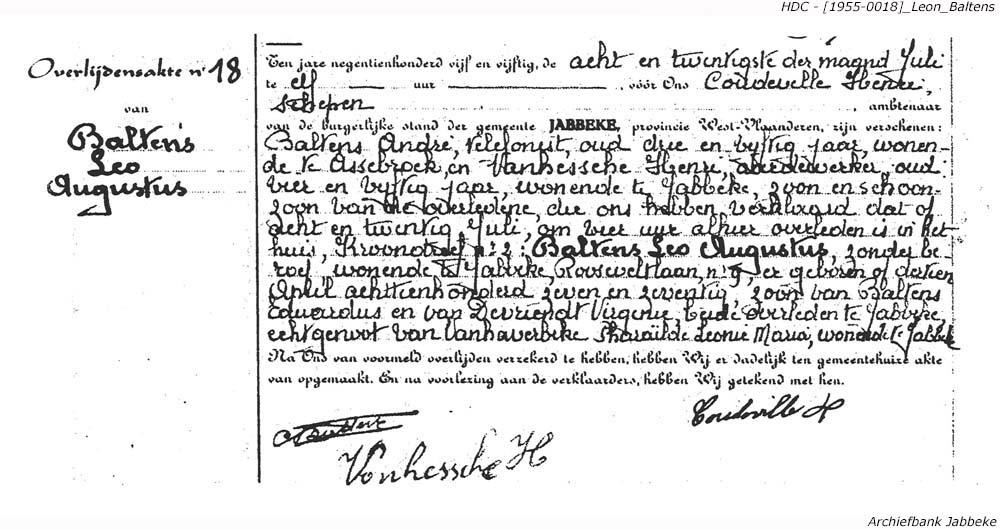 HDC - [1955-0018]_Leon_Baltens
Overlijdensakte nr 18
van
Baltens
Leo
Augustus
Ten jare negentienhonderd vijf en vijftig, de acht en twintigste der maand Juli
te elf uur , vóór Ons Coudeville Henri,
schepen , ambtenaar
van de burgerlijke stand der gemeente JABBEKE, provincie West-Vlaanderen, zijn verschenen:
Baltens André, telefonist, oud drie en vijftig jaar, wonen-
de te Assebroek, en Vanhessche Henri, oud
vier en vijftig jaar, wonende te Jabbeke, zoon en schoon-
zoon van de overledene, die ons hebben verklaard dat op
acht en twintig Juli, om vier uur alhier overleden is in het
huis, nr 2: Baltens Leo Augustus, zonder be-
roep, wonende te Jabbeke, Rooseveltlaan, nr 9, er geboren op dertien
April achttienhonderd zeven en zeventig, zoon van Baltens
Eduardus en van Devriendt Virginie, beide overleden te Jabbeke,
echtgenoot van Vanhaverbeke Pharaïlde Leonie Maria, wonende te Jabbeke
Na Ons van voormeld overlijden verzekerd te hebben, hebben Wij er dadelijk ten gemeentehuize akte
van opgemaakt. En na voorlezing aan de verklaarders, hebben Wij getekend met hen.
Coudeville H
Vanhessche H
Archiefbank Jabbeke